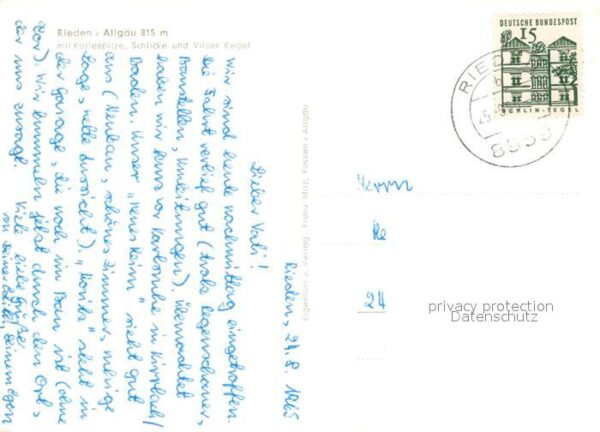 Rieden, Allgäu 815 m
mit Karlespitze, Schlicke und Vilser Kegel
Rieden, 24.8.1965
Lieber Vati!
Wir sind heute nachmittag eingetroffen.
Die Fahrt verlief gut (trotz Regenschauer,
Baustellen, Umleitungen). Übernachtet
haben wir kurz vor Karlsruhe in
Baden. Unser "neues Heim" sieht gut
aus (Neubau, schönes Zimmer, ruhige
Lage, nette Aussicht). "Moritz" steht in
der Garage, die noch im Bau ist (ohne
Tor). Wir bummeln jetzt durch den Ort,
der uns zusagt.
Viele liebe Grüße
von Deiner
Eigentum u. Verlag Franz Milz, Füssen, Allgäu
DEUTSCHE BUNDESPOST
15
BERLIN-TEGEL
RIED
8959
Herrn
24
privacy protection
Datenschutz